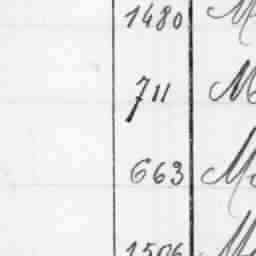 1480 M
711 M
663 M
1506 M